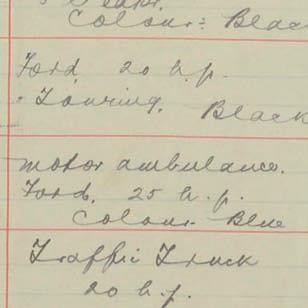 Colour: Black
Ford. 20 h.p.
Touring. Black
motor ambulance.
Ford. 25 h.p.
Colour. Blue
Traffic Truck
20 h.p.